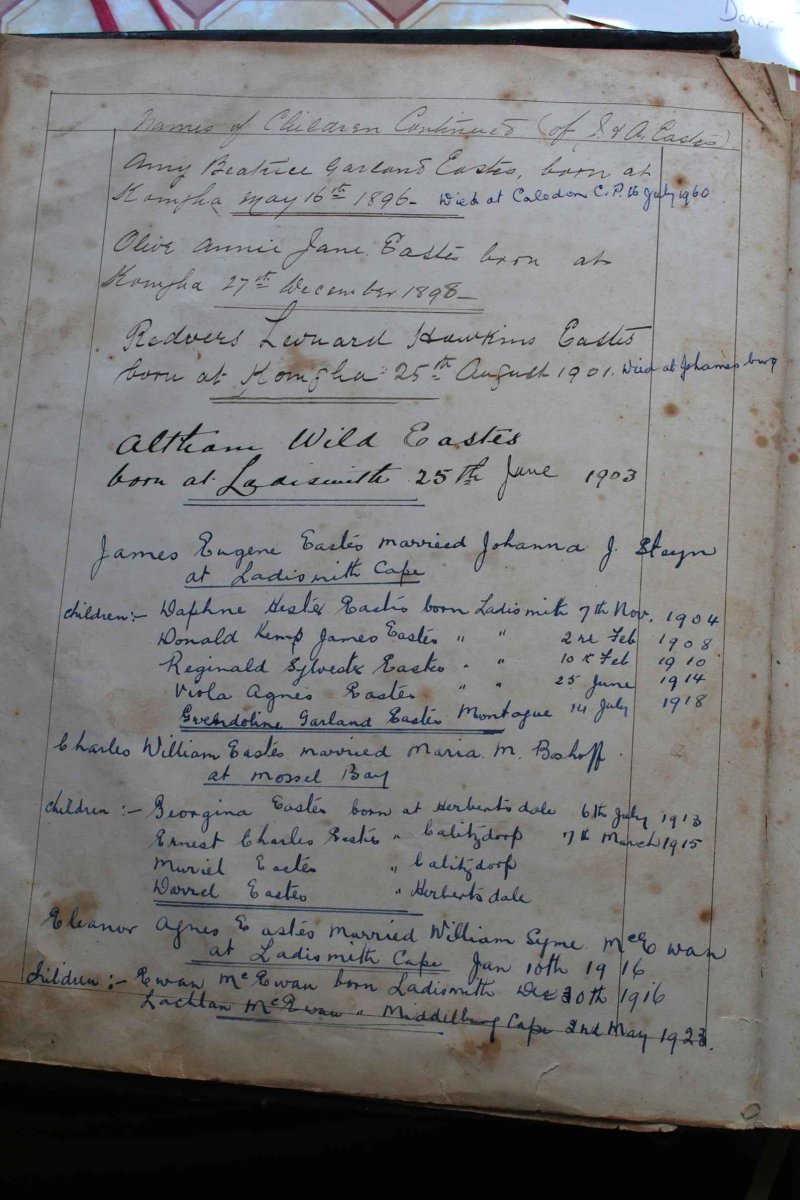 Doner
Names of Children Continued (of J. & A. Eastes)
Amy Beatrice Garland Eastes, born at
Komgha May 16th 1896 - Died at Caledon C.P. 16 July 1960
Olive Annie Jane Eastes born at
Komgha 27th December 1898 -
Redvers Leonard Hawkins Eastes
born at Komgha 25th August 1901. Died at Johannesburg
Altham Wild Eastes
born at Ladismith 25th June 1903
James Eugene Eastes married Johanna J. Steyn
at Ladismith Cape
Children:- Daphne Hester Eastes born Ladismith 7th Nov. 1904
Donald Kemp James Eastes " " 2nd Feb 1908
Reginald Sylvester Eastes " " 10th Feb 1910
Viola Agnes Eastes " " 25 June 1914
Gwendoline Garland Eastes Montague 14 July 1918
Charles William Eastes married Maria M. Boshoff
at Mossel Bay
Children:- Georgina Eastes born at Herbertsdale 6th July 1913
Ernest Charles Eastes " Calitzdorp 7th March 1915
Muriel Eastes " Calitzdorp
Darrel Eastes " Herbertsdale
Eleanor Agnes Eastes married William Syme McEwan
at Ladismith Cape Jan 10th 1916
Children:- Ewan McEwan born Ladismith Dec 30th 1916
Lachlan McEwan " Middelburg Cape 2nd May 1923.